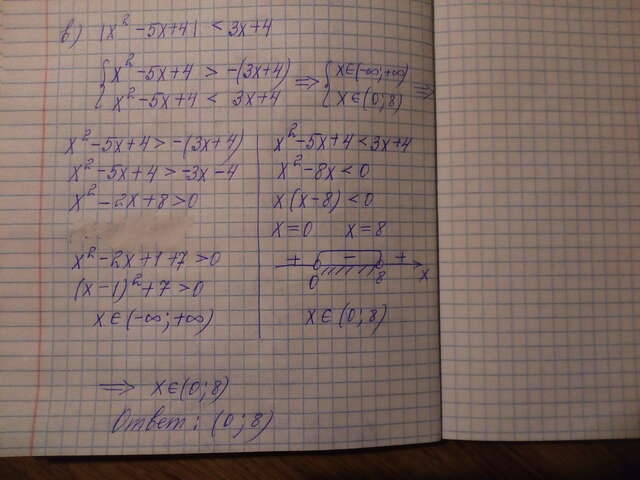 в) |x² - 5x+4| < 3x+4
{ x² - 5x+4 > -(3x+4) ⇒ { x∈(-∞;+∞)
{ x² - 5x+4 < 3x+4 { x∈(0;8) ⇒
x² - 5x+4 > -(3x+4)
x² - 5x+4 > -3x - 4
x² - 2x + 8 > 0
x² - 2x + 1 + 7 > 0
(x - 1)² + 7 > 0
x∈(-∞; +∞)
x² - 5x + 4 < 3x+4
x² - 8x < 0
x(x-8) < 0
x=0 x=8
+ - + x
0 8
x∈(0;8)
⇒ x∈(0;8)
Ответ: (0;8)